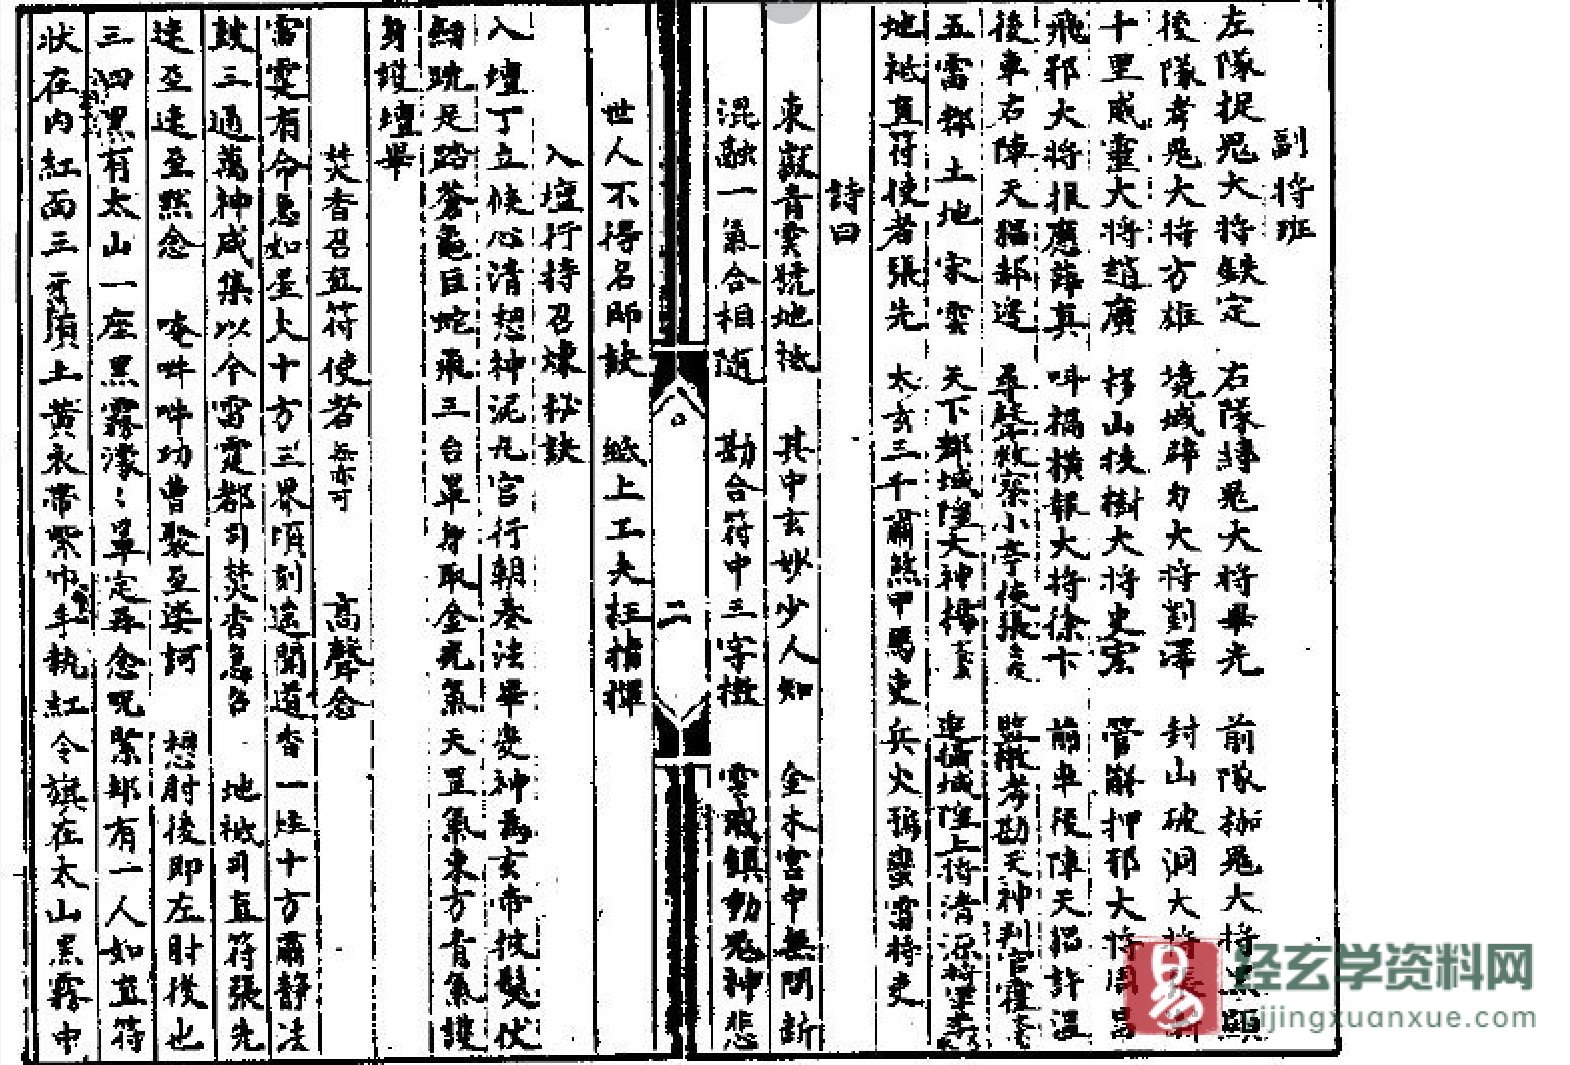 副將班
左隊捉鬼大將鉄定 右隊縛鬼大將畢光 前隊枷鬼大將黑顯
後隊考鬼大將方雄 境城碎力大將劉澤 封山破洞大將張
十里威靈大將趙廣 移山拔樹大將史宏 管解押邪大將周昌
飛邪大將報應薛真 叫搨橫報大將徐卞 前車後陣天猖許温
後車右陣天猖郝邊 尋聲救察小亭侯張 監獄考勘天神判官
五雷都土地宋雲 天下都城隍大神楊 進備城隍上侍清源
地祇直符使者張先 太玄三千肅煞甲馬吏兵火獅蠻雷將吏
詩曰
東嶽青雲號地祇 其中玄妙少人知 金木宮中無間斷
混融一氣合相隨 勘合符中三字檄 雲城鎮動鬼神悲
二
世人不得名師訣 紙上工夫枉指揮
入壇行持召煉秘訣
入壇丁立候心清想神泥丸宮行朝奏法畢變神為玄帝披髮伏
劍跣足踏蒼龜巨蛇飛三台罩身取金光氣天罡氣東方青氣護
身護壇畢
焚香召直符使者 高聲念
雷霆有命急如星火十方三界頃刻遙聞道香一炷十方肅靜法
鼓三通萬神咸集以今雷霆都司焚香急召 地祇司直符張先
速至速至然念 唵吽吽功曹聚至娑訶 想肘後即左肘後也
三四黑有太山一座黑霧濛濛單定再念呪緊却有一人如直符
狀在内紅面三牙鬚上黃衣帶紫巾手執紅令旗在太山黑霧中
易
经玄学资料网
yijingxuanxue.com